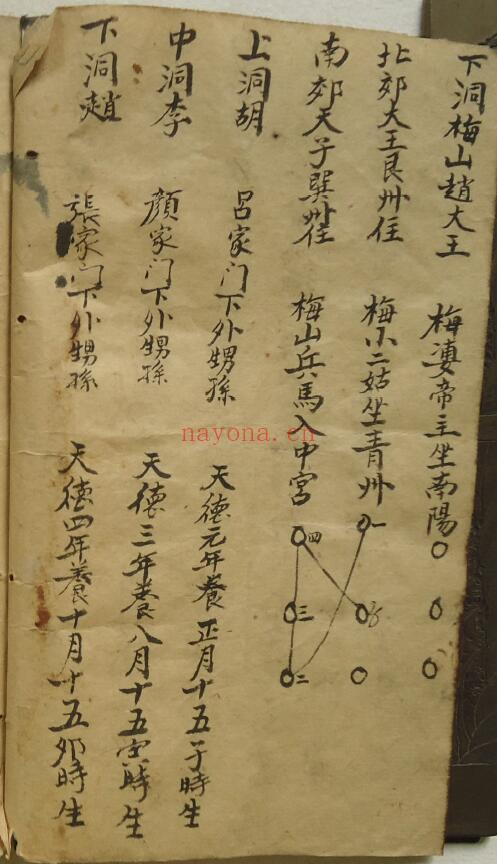 下洞梅山趙大王 梅婆帝主坐南陽
北郊大王艮州住 梅小二姑坐青州
南郊天子巽州住 梅山兵馬入中宮
一
四 三 二
上洞胡 呂家门下外甥孫 天德元年養正月十五子時生
中洞李 顏家门下外甥孫 天德三年養八月十五寅時生
下洞趙 張家门下外甥孫 天德四年養十月十五卯時生
nayona.cn